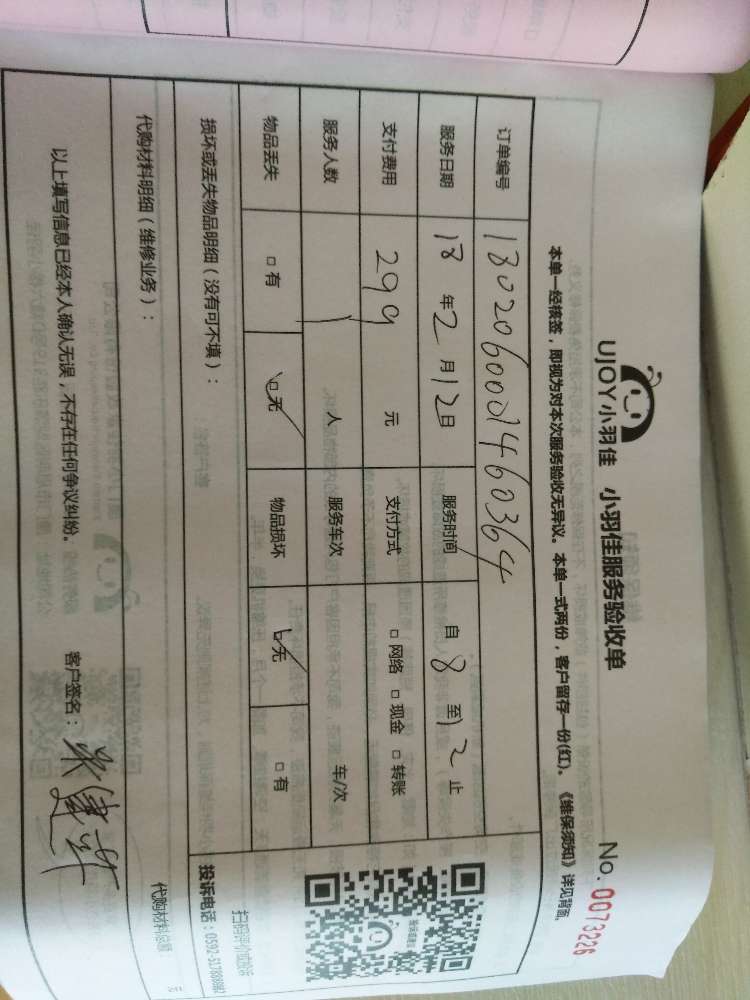 UJOY小羽佳 小羽佳服务验收单 No. 0073226
本单一经核签，即视为对本次服务验收无异议。本单一式两份，客户留存一份(红)。《维保须知》详见背面。
订单编号 1802060001460364
服务日期 18年2月12日 服务时间 自8至12止
支付费用 299元 支付方式 □网络 □现金 □转账
服务人数 人 服务车次 车/次
物品丢失 □有 □无 物品损坏 □无 □有
损坏或丢失物品明细（没有可不填）：
扫码评价或投诉
投诉电话：
代购材料明细（维修业务）：
代购材料总额
以上填写信息已经本人确认无误，不存在任何争议纠纷。 客户签名：